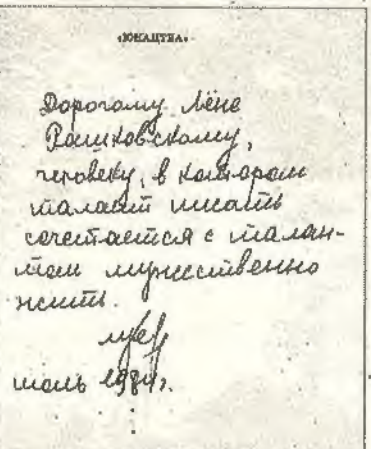 «ЮНАЦТВА»
Дорогому Лёне
Рашковскому,
человеку, в котором
талант писать
сочетается с талан-
том мужественно
жить.
июль 1984г.